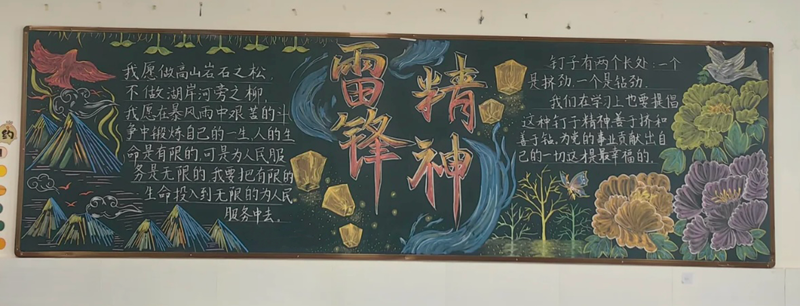 我愿做高山岩石之松,
不做湖岸河旁之柳.
我愿在暴风雨中艰苦的斗
争中锻炼自己的一生.人的生
命是有限的,可是为人民服
务是无限的.我要把有限的
生命投入到无限的为人民
服务中去。
雷锋
精神
钉子有两个长处:一个
是挤劲,一个是钻劲.
我们在学习上也要提倡
这种钉子精神善于挤和
善于钻,为党的事业贡献出自
己的一切这才是最幸福的.
约